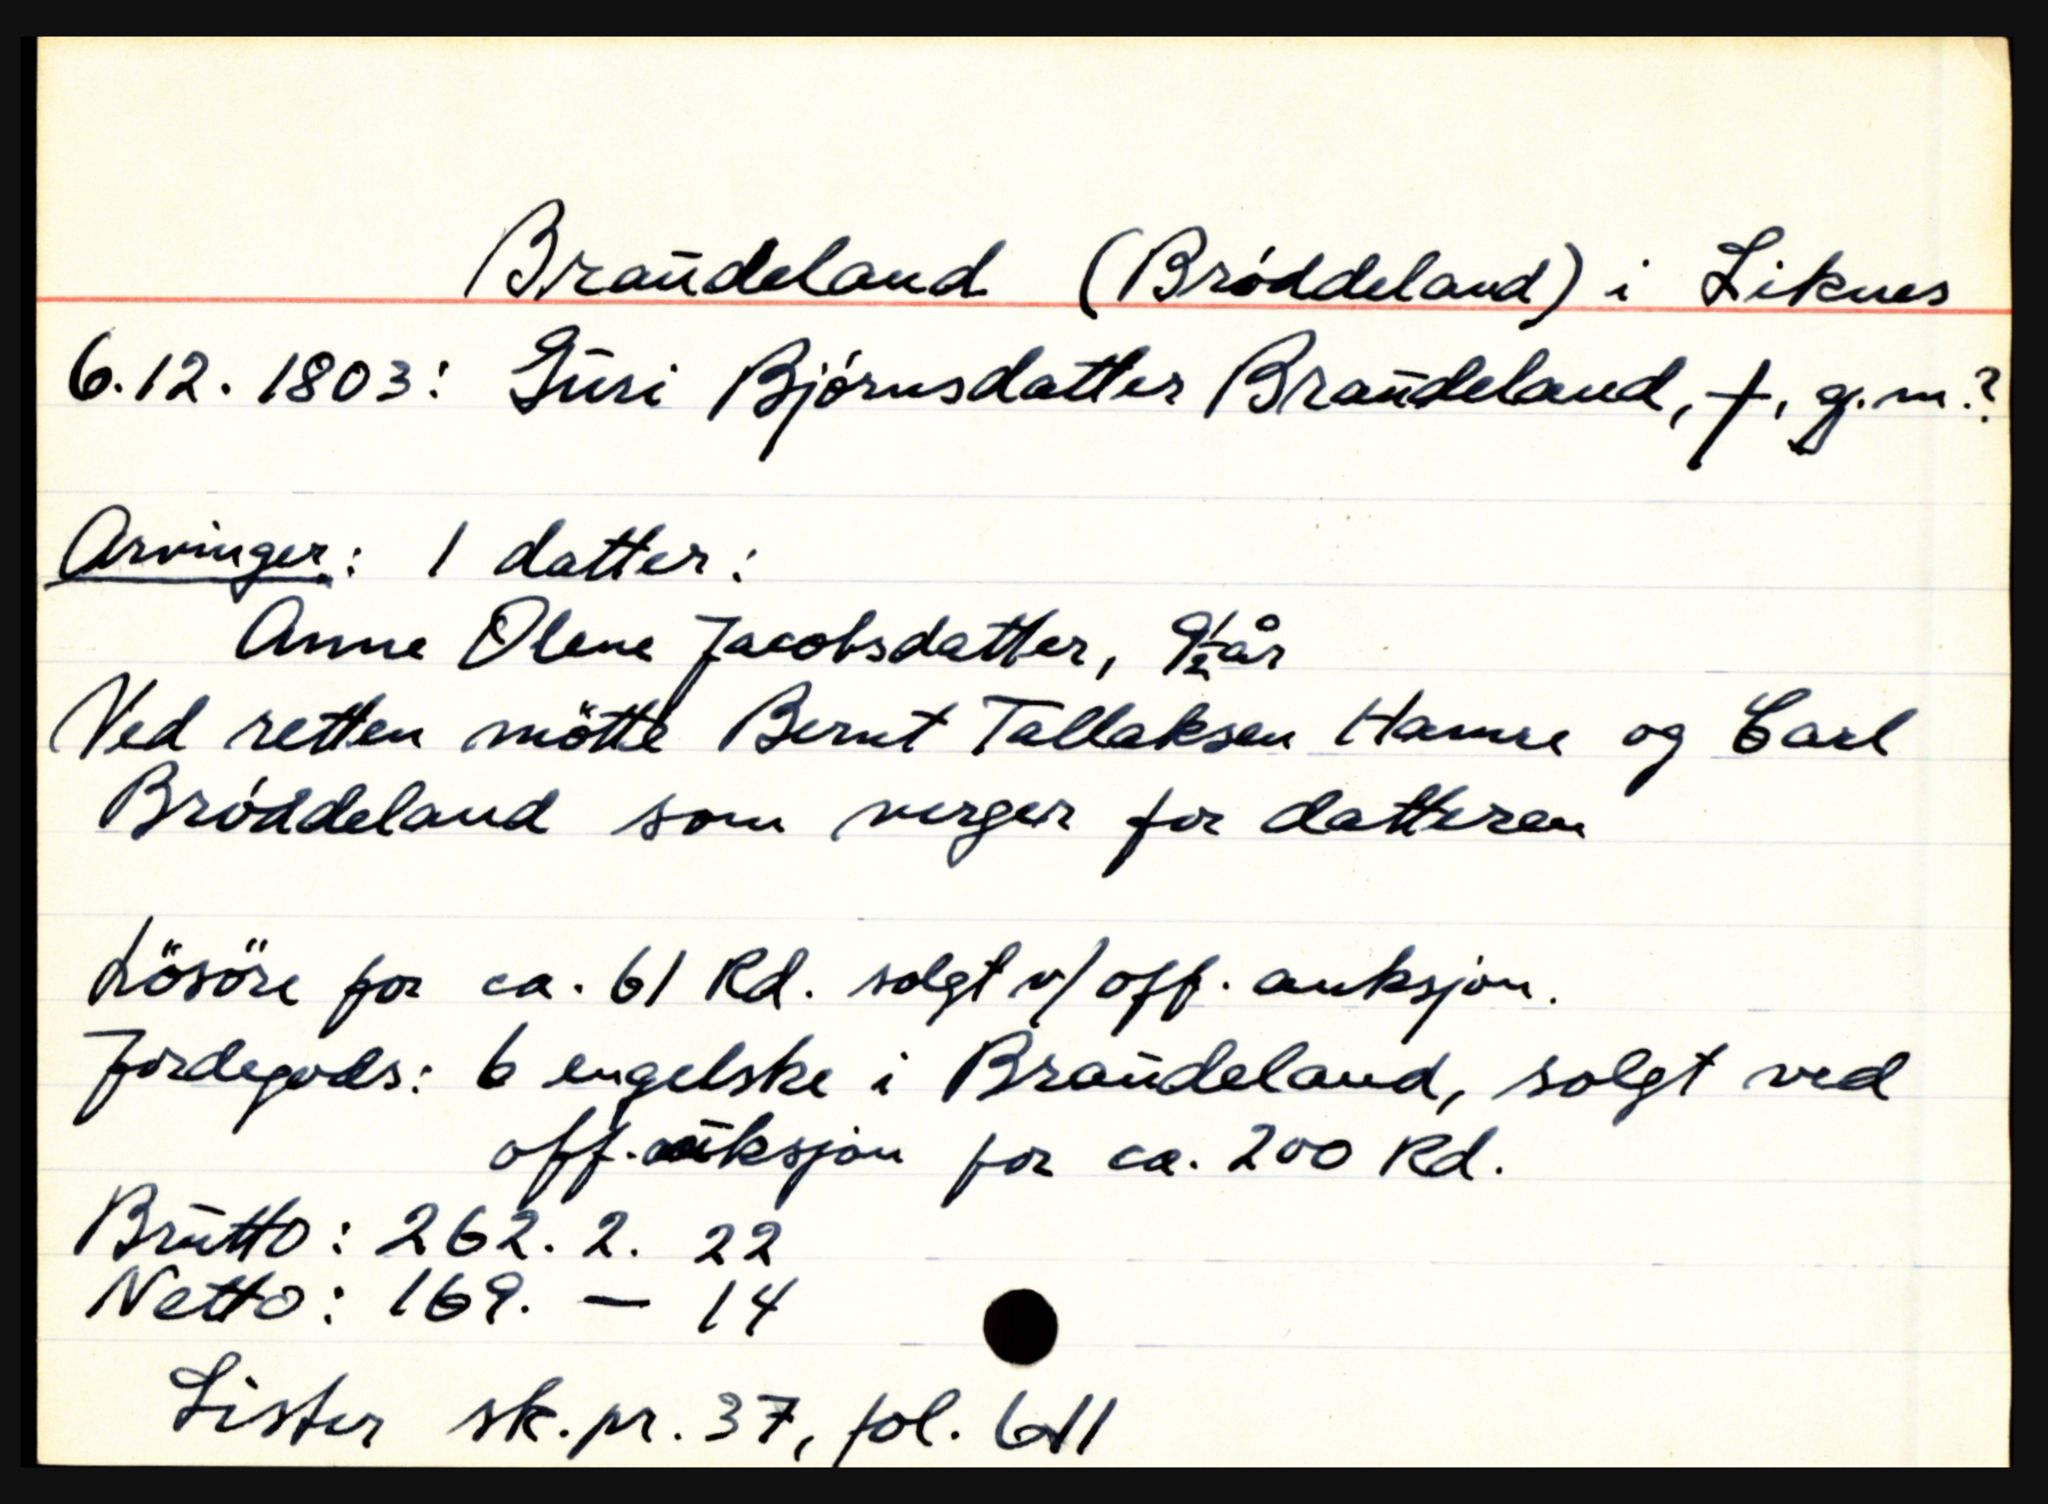 Braŭdeland (Bróddeland) i Liknes
6.12.1803: Gŭri Bjórnsdatter Braŭdeland, †, g.m.?
Arvinger: 1 datter:
Anne Olene Jacobsdatter, 9½ år
Ved retten mötte Bernt Tallaksen Hamre og Carl
Bróddeland som verger for datteren
Lösöre for ca. 61 Rd. solgt v/ off. auksjon.
Jordegods: 6 engelske i Braŭdeland, solgt ved
off. auksjon for ca. 200 Rd.
Brŭtto: 262. 2. 22
Netto: 169. — 14
Lister sk.pr. 37, fol. 611